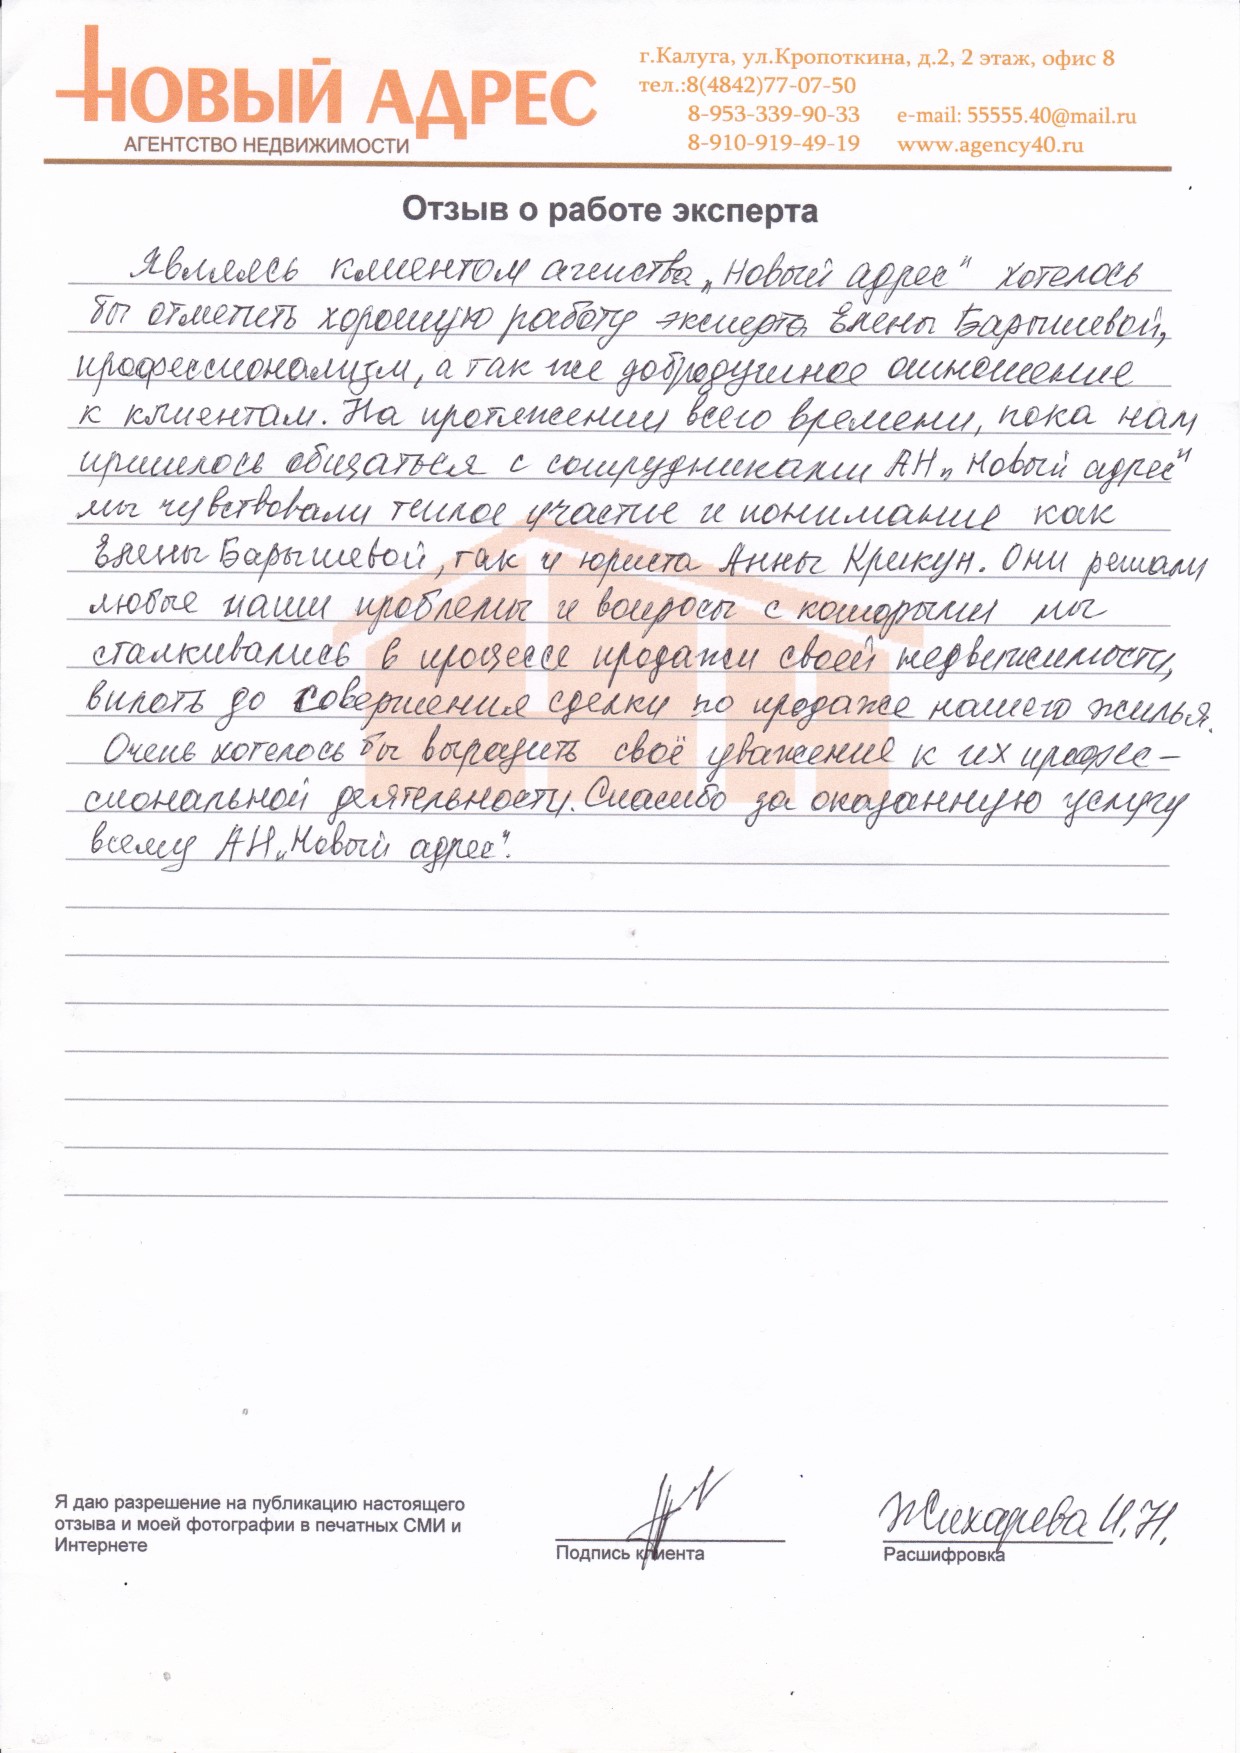 НОВЫЙ АДРЕС
АГЕНТСТВО НЕДВИЖИМОСТИ
г.Калуга, ул.Кропоткина, д.2, 2 этаж, офис 8
тел.:8(4842)77-07-50
8-953-339-90-33 e-mail: 55555.40@mail.ru
8-910-919-49-19 www.agency40.ru
Отзыв о работе эксперта
Являясь клиентом агенства „Новый адрес" хотелось
бы отметить хорошую работу эксперта Елены Барышевой,
профессионализм, а так же добродушное отношение
к клиентам. На протяжении всего времени, пока нам
пришлось общаться с сотрудниками АН „Новый адрес"
мы чувствовали теплое участие и понимание как
Елены Барышевой, так и юриста Анны Крикун. Они решали
любые наши проблемы и вопросы с которыми мы
сталкивались в процессе продажи своей недвижимости,
вплоть до совершения сделки по продаже нашего жилья.
Очень хотелось бы выразить своё уважение к их профес-
сиональной деятельности. Спасибо за оказанную услугу
всему АН „Новый адрес".
Я даю разрешение на публикацию настоящего
отзыва и моей фотографии в печатных СМИ и
Интернете
Подпись клиента
Жихарева И.Н.
Расшифровка